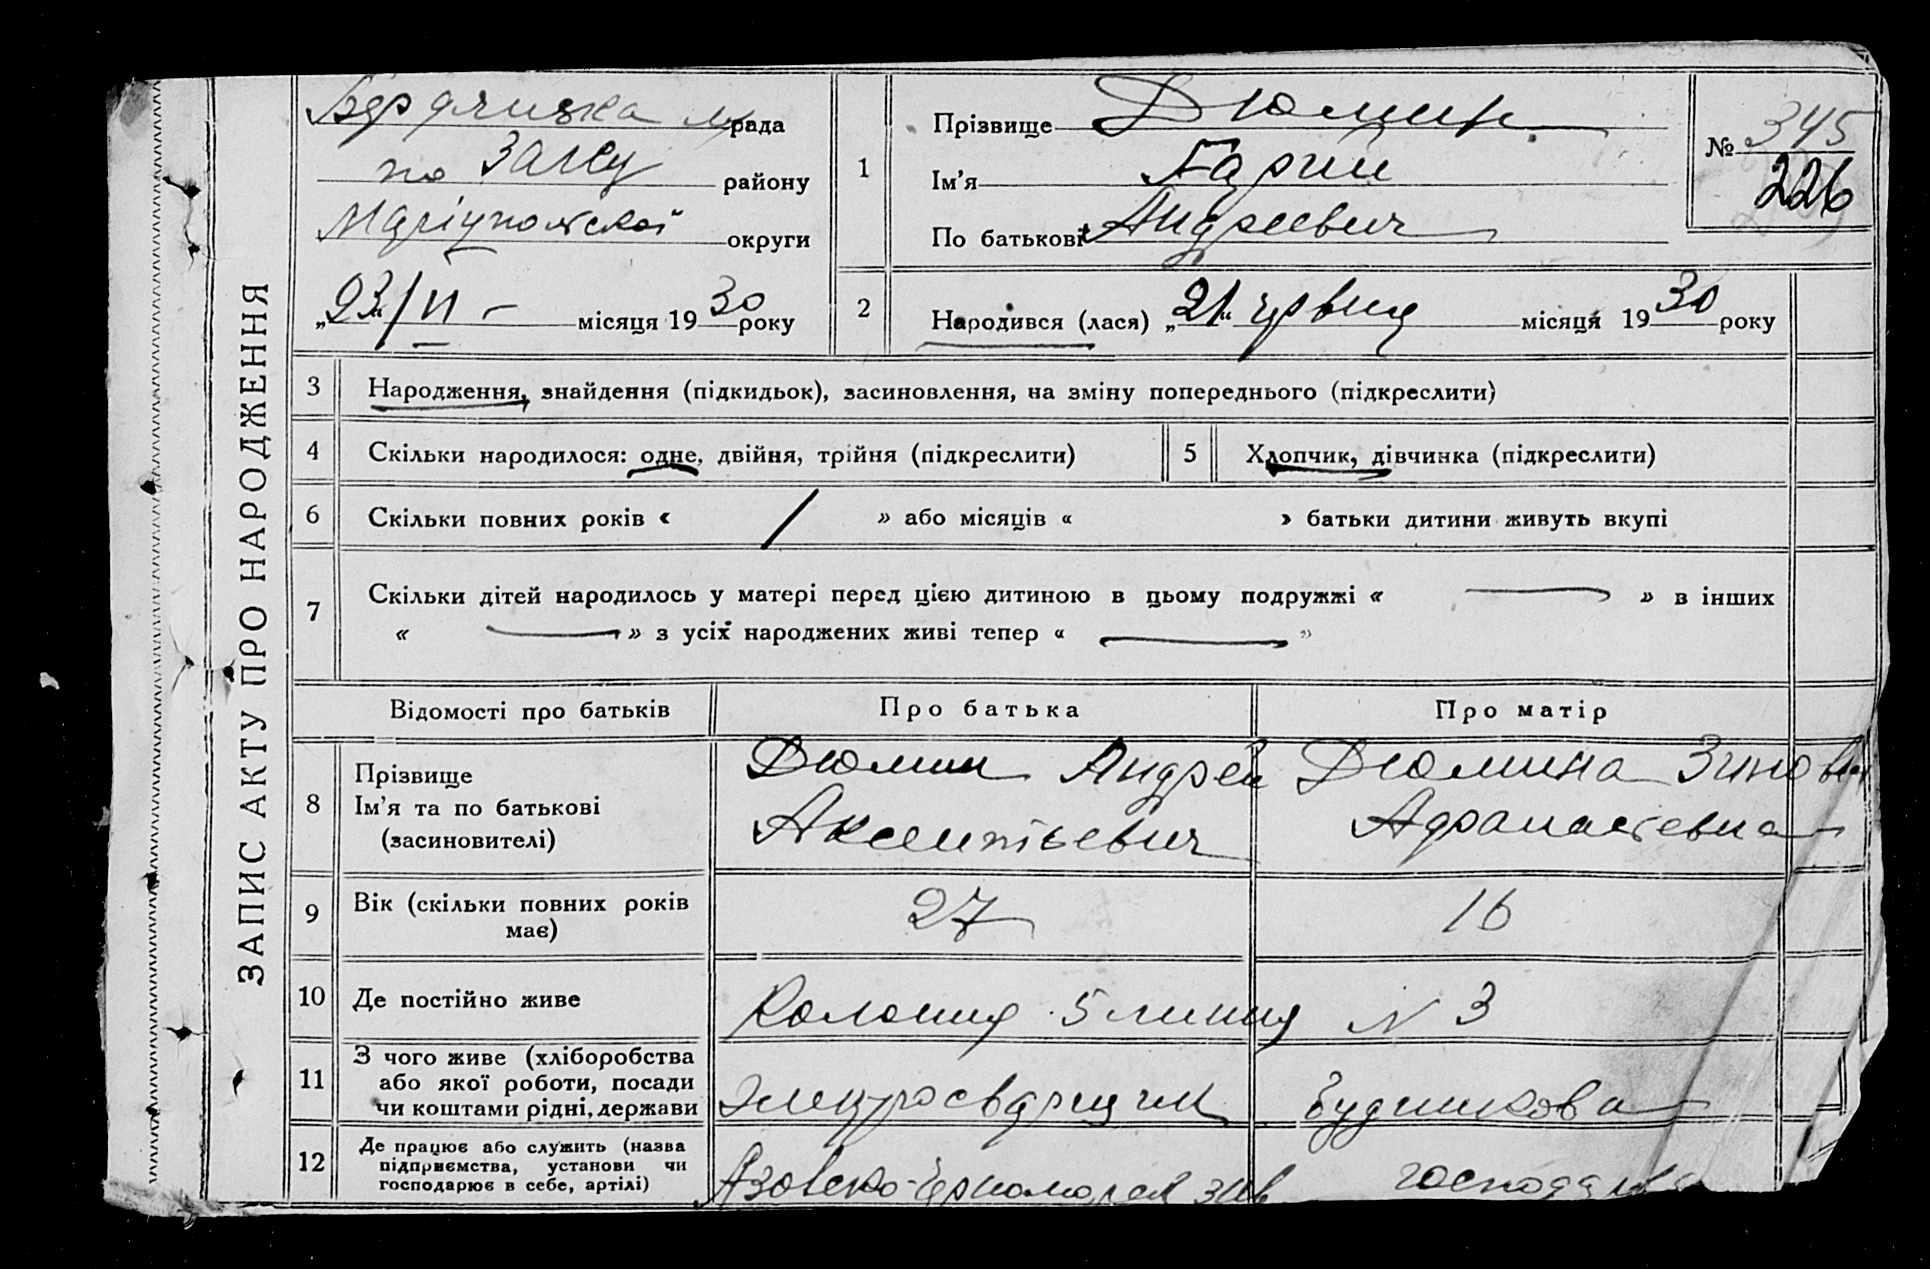 ЗАПИС АКТУ ПРО НАРОДЖЕННЯ
Бердянська м рада
по Загсу району
Маріупольской округи
„23“/VI – місяця 1930 року
1 Прізвище Дюмин
Ім’я Гарий
По батькові Андреевич
№ 345
226
2 Народився (лася) „21“ червня місяця 1930 року
3 Народження, знайдення (підкидьок), засиновлення, на зміну попереднього (підкреслити)
4 Скільки народилося: одне, двійня, трійня (підкреслити)
5 Хлопчик, дівчинка (підкреслити)
6 Скільки повних років « / » або місяців « » батьки дитини живуть вкупі
7 Скільки дітей народилось у матері перед цією дитиною в цьому подружжі « — » в інших
« — » з усіх народжених живі тепер « — »
Відомості про батьків Про батька Про матір
8 Прізвище
Ім’я та по батькові
(засиновителі)
Дюмин Андрей
Аксентьевич
Дюмина Зинов
9 Вік (скільки повних років
має)
27
16
10 Де постійно живе
Колония 5 линия N 3
11 З чого живе (хліборобства
або якої роботи, посади
чи коштами рідні, держави
Электросварщик
12 Де працює або служить (назва
підприємства, установи чи
господарює в себе, артілі)
Азовско-Черноморск зав